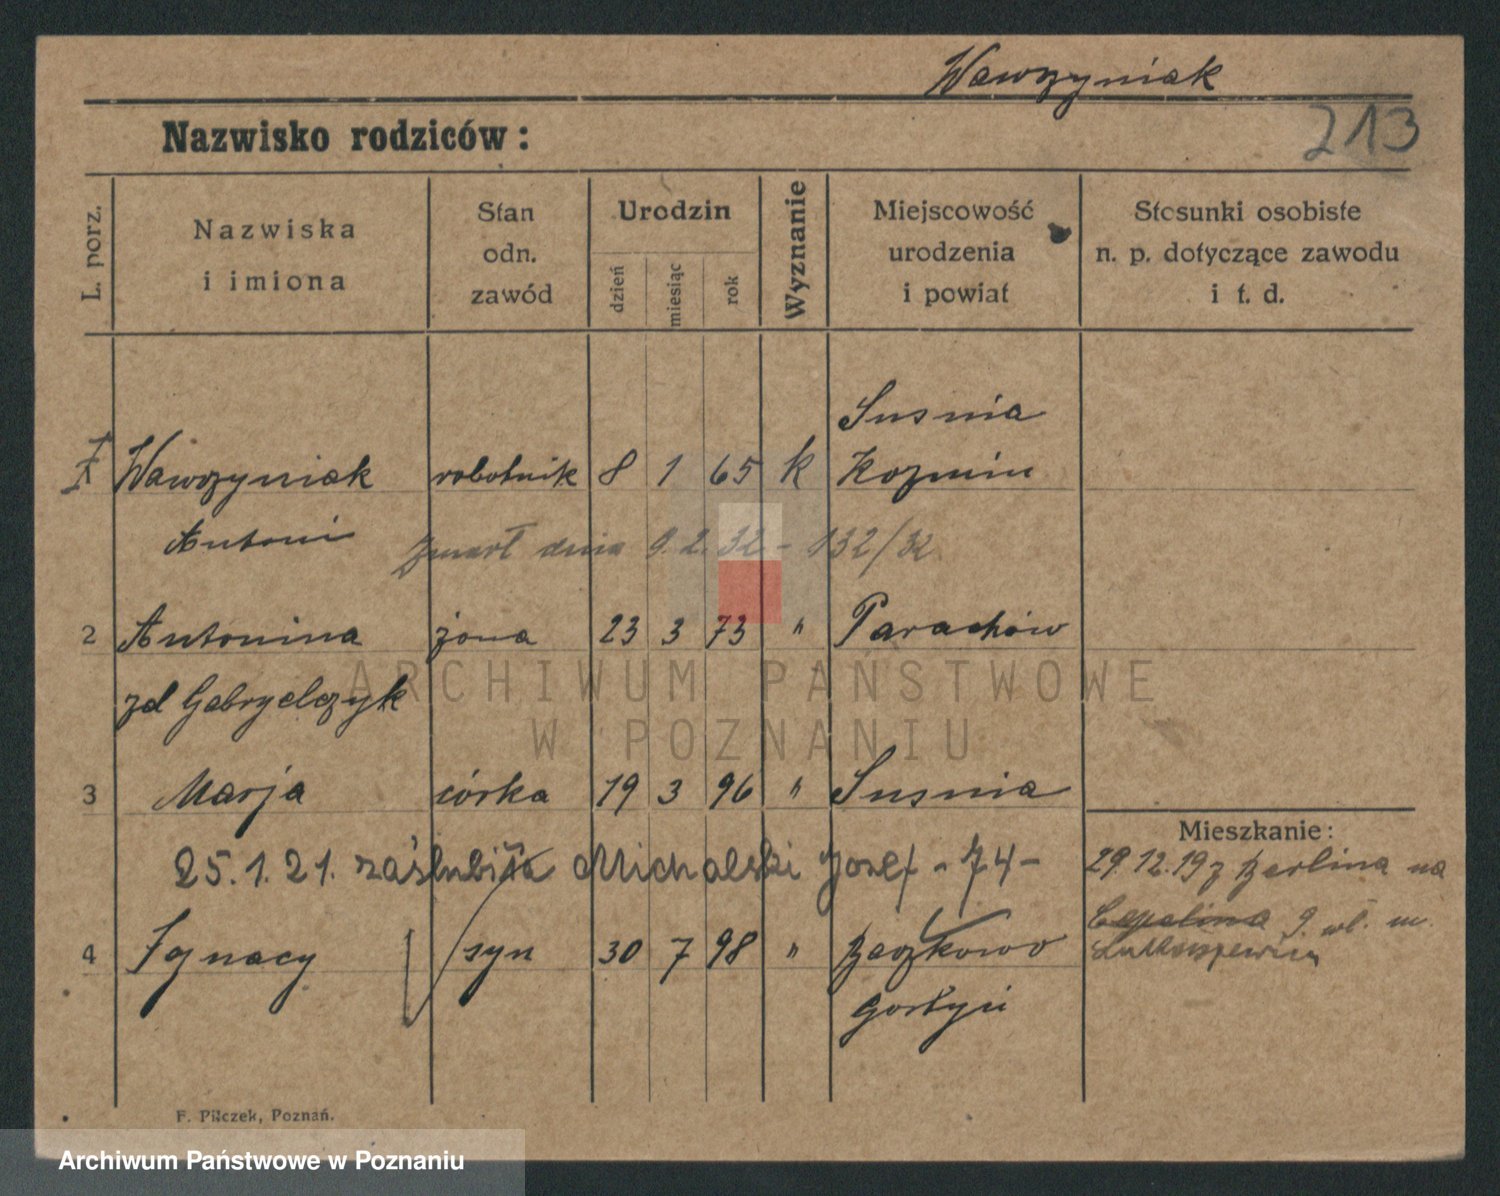 Wawrzyniak
213
Nazwisko rodziców:
L. porz.
Nazwiska
i imiona
Stan
odn.
zawód
Urodzin
dzień
miesiąc
rok
Wyznanie
Miejscowość
urodzenia
i powiat
Stosunki osobiste
n. p. dotyczące zawodu
i t. d.
Susnia
1 Wawrzyniak robotnik 8 1 65 k Kozmin
Antoni
zmarł dnia 9.2.32 - 132/32
2 Antonina żona 23 3 73 " Parachów
zd Gabryelczyk
3 Marja córka 19 3 96 " Susnia
Mieszkanie:
25.1.21. zaślubiła Michalski Jozef - 74 -
29.12.19 z Berlina na
9. wł. m.
4 Ignacy syn 30 7 98 " Baczkowo
Gostyń
F. Pilczek, Poznań.
ARCHIWUM PAŃSTWOWE
W POZNANIU
Archiwum Państwowe w Poznaniu